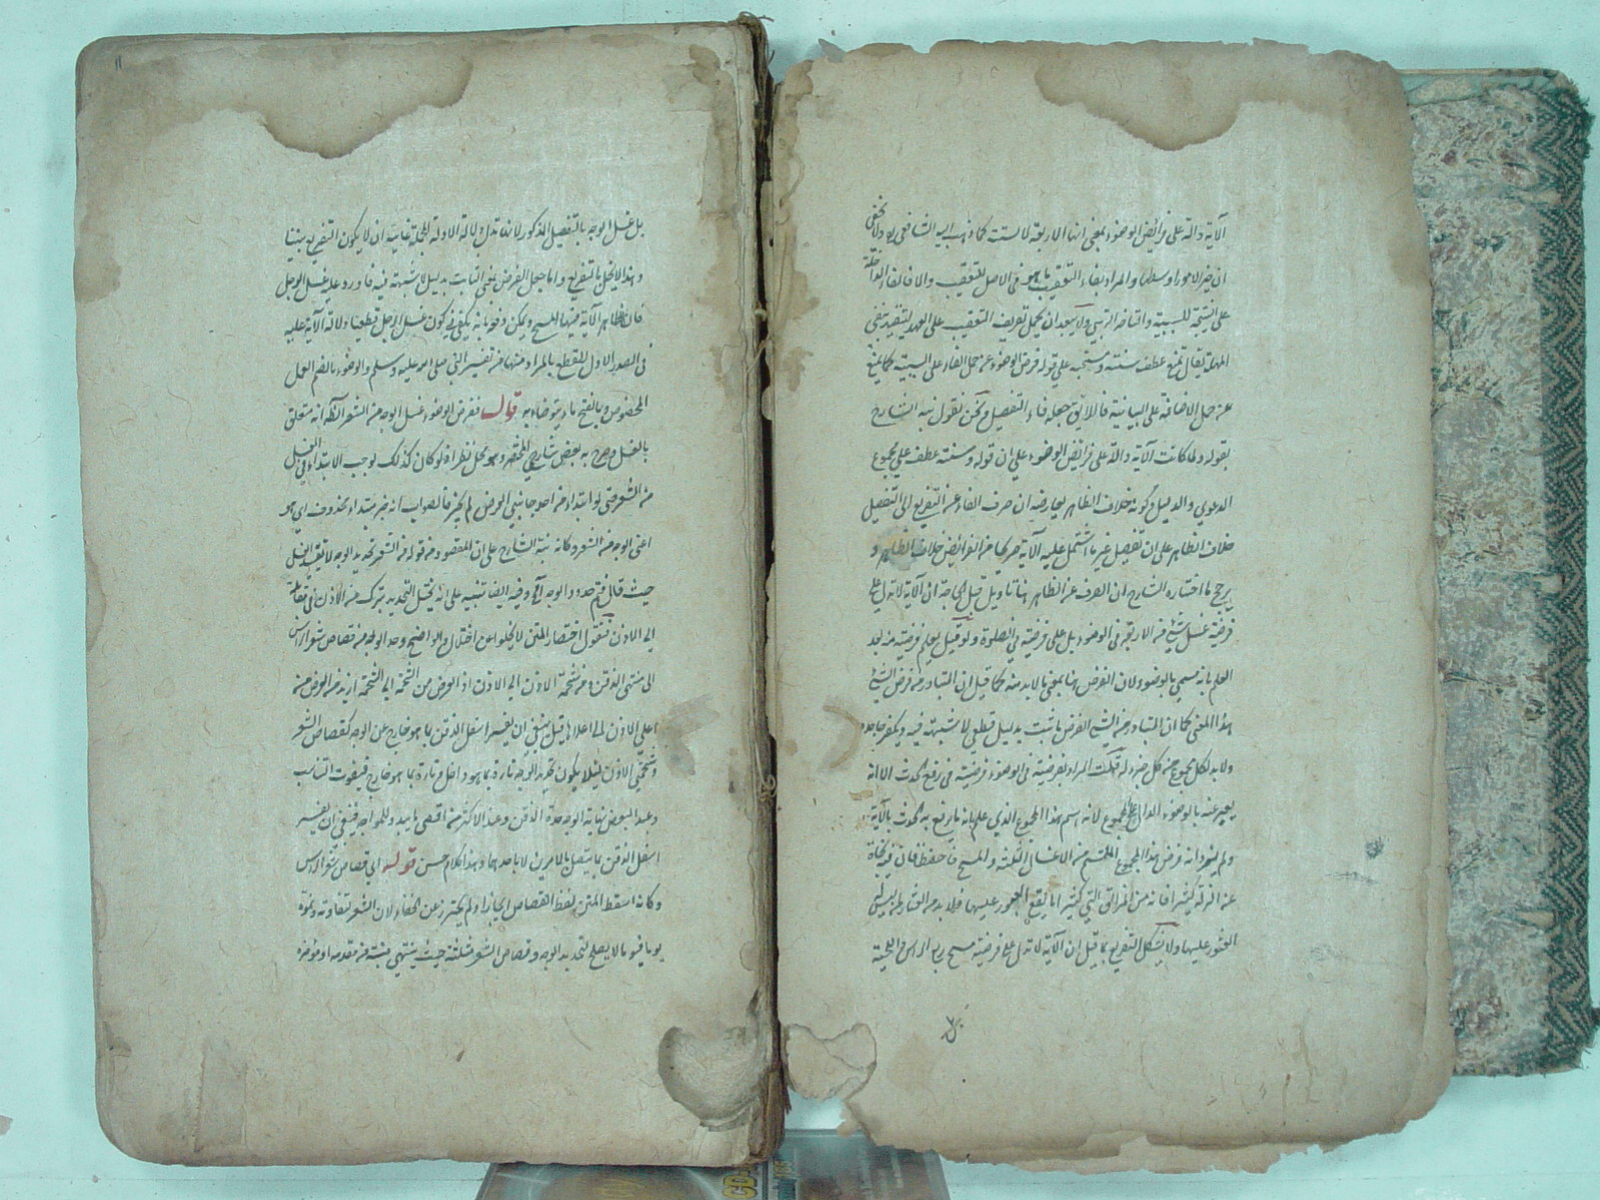 الآية دالة على فرائض الوضوء بمعنى انها الاربعة لا ستة كما ذهب اليه الشافعي ره ولا يخفى
ان خير الامور اوسطها والمراد بفاء التعقيب ما هو في الاصل للتعقيب والا فالفاء الداخلة
على النتيجة للسببية والتأخر الرتبي ولا يبعد ان يحمل تعريف التعقيب على العهد
المهملة يقال يمنع عطف سنته ومستحبه على قوله فرض الوضوء عن حمل الفاء على السببية كما يمنع
عن حمل الاضافة على البيانية فاللائق جعله فاء التفصيل ونحن نقول نبه الشارح
بقوله ولما كانت الآية دالة على فرائض الوضوء على ان قوله وسنته عطف على مجموع
الدعوى والدليل وكونه خلاف الظاهر يعارضه ان صرف الفاء عن التفريع الى التفصيل
خلاف الظاهر على ان تفصيل غير ما اشتمل عليه الآية من الفرائض خلاف الظاهر و
يرجح ما اختاره الشارح ان الصرف عن الظاهر هنا تأويل قبل الحاجة ان الآية لا تدل على
فرضية غسل شيء من الاربعة في الوضوء بل على فرضيته في الصلوة ولو قيل يعلم فرضيته من بعد
العلم بانه سمي بالوضوء لان الفرض هنا بمعنى ما لا بد منه كما قيل ان المتبادر من فرض الشيء
هذا المعنى كما ان المتبادر من الشيء الفرض ما ثبت بدليل قطعي لا شبهة فيه ويكفر جاحده
ولا بد لكل مجموع من كل جزء له قلت المراد بفرضيته في الوضوء فرضيته في رفع الحدث الا انه
يعبر عنه بالوضوء الدال على المجموع لانه اسم لهذا المجموع الذي علم بانه ما يرفع به الحدث بالآية
ولم يرد انه فرض لهذا المجموع الملتئم من الاغسال الثلثة والمسح فاحفظه فان فيه نجاة
عن الزلة كيف فانه من المزالق التي كثيرا ما يقع العبور عليها فلا بد من
العثور عليها ولا يشكل التفريع بما قيل ان الآية لا تدل على فرضية مسح ربع الرأس واللحية
بل
بل غسل الوجه بالتفصيل المذكور لانها تدل دلالة الاولة المجملة غايته ان لا يكون التفريع بينا
وهذا لا يخل بالتفريع واما جعل الفرض بمعنى الثابت بدليل لا شبهة فيه فاورد عليه غسل الرجل
فان ظاهر الآية فيها المسح ويمكن دفعه بانه يكفي في كون غسل الرجل قطعيا دلالة الآية عليه
في الصدر الاول للقطع بالمراد منها من تفسير النبي صلى الله عليه وسلم والوضوء بالضم العمل
المخصوص وبالفتح ماء يتوضاء به قوله ففرض الوضوء غسل الوجه من الشعر الظاهر انه متعلق
بالغسل وصرح به بعض شارحي المختصر وهو محل نظر اذ لو كان كذلك لوجب الابتداء في الغسل
من الشعر حتى لو ابتداء من احد جانبي العرض لم يجز فالصواب انه خبر مبتداء محذوف اي هو
اعني الوجه من الشعر وكأنه نبه الشارح على ان المقصود من قوله من الشعر تحديد الوجه لا تقييد الغسل
حيث قال فتم حدود الوجه الخ وفيه ايضا تنبيه على انه يختل التحديد بترك من الاذن في مقابلة
الى الاذن فنقول اختصار المتن لا يخلو عن اختلال والواضح وحد الوجه من قصاص شعر الرأس
الى منتهى الذقن ومن شحمة الاذن الى الاذن اذ العرض من الشحمة الى الشحمة ازيد من العرض منه
اعلى الاذن الى اعلاها قيل ينبغي ان يفسر اسفل الذقن بما هو خارج عن الوجه كقصاص الشعر
وشحمتي الاذن لئلا يكون تحديد الوجه تارة بما هو داخل وتارة بما هو خارج فيفوت التناسب
وعند البعض نهاية الوجه حدة الذقن وعند الاكثر منه اقصى ما يبدو للمواجه فينبغي ان يفسر
اسفل الذقن بما يتصل بالامرين لا باحدهما وهذا كلام حسن قوله اي قصاص شعر الرأس
وكانه اسقط المتن لفظ القصاص ايجازا ولم يحترز عن الخفاء لان الشعر لتفاوته ونموه
يوما فيوما لا يصلح لتحديد الوجه وقصاص الشعر مثلثة حيث ينتهي منبته من مقدمه او مؤخره